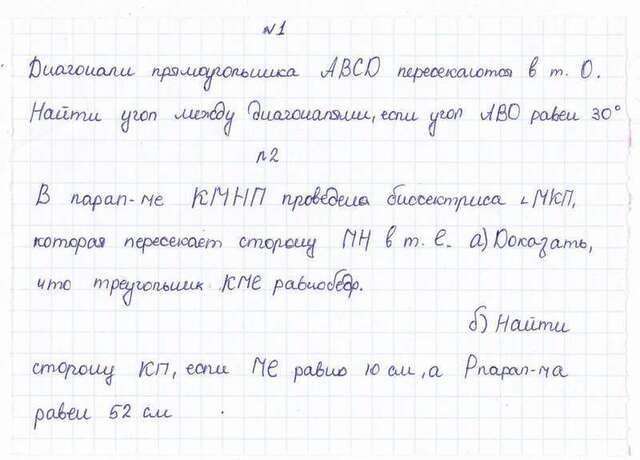 №1
Диагонали прямоугольника ABCD пересекаются в т. О.
Найти угол между диагоналями, если угол ABO равен 30°
№2
В парал-ме КМНП проведена биссектриса ∠МКП,
которая пересекает сторону МН в т. Е. а) Доказать,
что треугольник КМЕ равнобедр.
б) Найти
сторону КП, если МЕ равно 10 см, а Рпарал-ма
равен 52 см